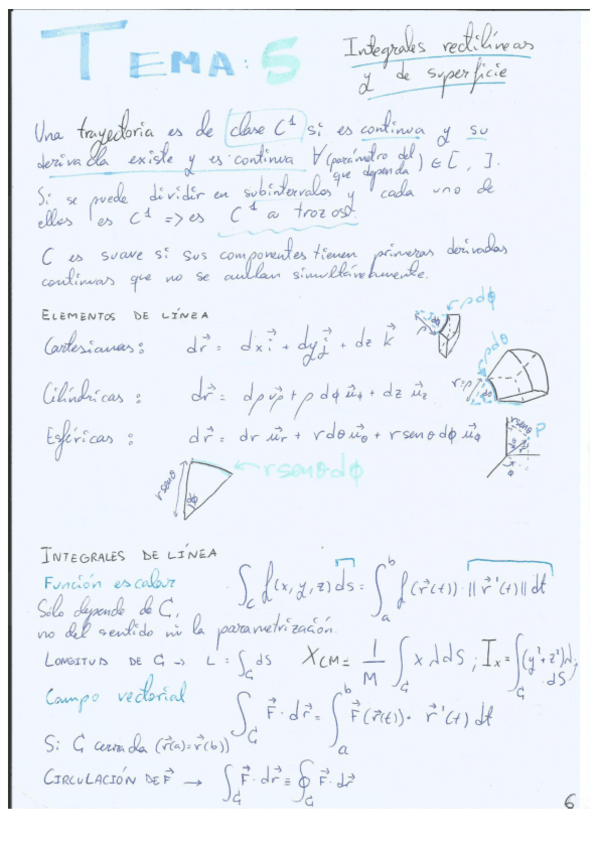 TEMA: 5
Integrales rectilíneas
y de superficie
Una trayectoria es de clase C¹ si es continua y su
derivada existe y es continua ∀ (parámetro del que dependa) ∈ [ , ].
Si se puede dividir en subintervalos y cada uno de
ellos es C¹ => es C¹ a trozos.
C es suave si sus componentes tienen primeras derivadas
continuas que no se anulan simultáneamente.
ELEMENTOS DE LÍNEA
ρdφ
Cartesianas: dr⃗ = dx i⃗ + dy j⃗ + dz k⃗
ρdθ
r=ρ
dθ
Cilíndricas: dr⃗ = dρ u⃗ρ + ρ dφ u⃗φ + dz u⃗z
Esféricas: dr⃗ = dr u⃗r + r dθ u⃗θ + r senθ dφ u⃗φ
r senθ
P
r senθ
dφ
r senθ dφ
INTEGRALES DE LÍNEA
Función escalar
∫_C f(x, y, z) ds = ∫_a^b f(r⃗(t)) · ||r⃗'(t)|| dt
Sólo depende de C,
no del sentido ni la parametrización.
LONGITUD DE C → L = ∫_C ds X_CM = 1/M ∫_C x λ ds ; I_x = ∫_C (y²+z²) λ ds
Campo vectorial
∫_C F⃗ · dr⃗ = ∫_a^b F⃗(r⃗(t)) · r⃗'(t) dt
Si C cerrada (r⃗(a)=r⃗(b))
CIRCULACIÓN DE F⃗ → ∫_C F⃗ · dr⃗ ≡ ∮_C F⃗ · dr⃗
6